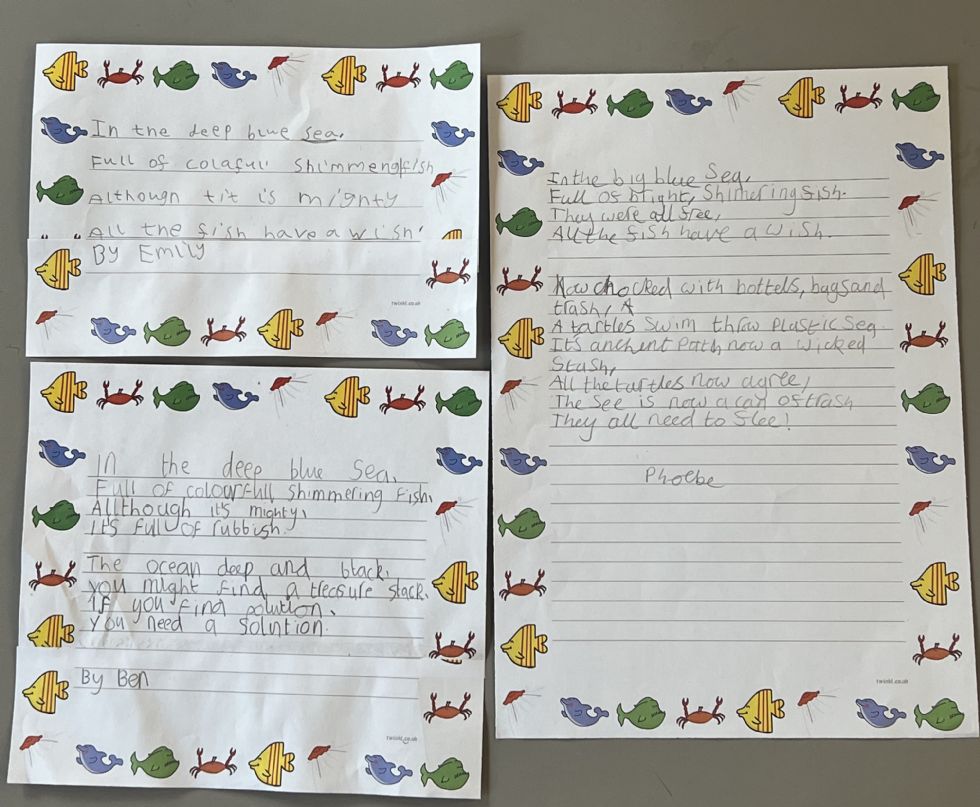 In the deep blue sea,
Full of colafull shimmengfish
Although tit is mighty
All the fish have a wish'
By Emily
twinkl.co.uk
In the deep blue Sea,
Full of colourfull shimmering fish,
Allthough it's mighty,
It's full of rubbish.
The ocean deep and black,
you might find a treasure stack.
If you find polution,
You need a solution.
By Ben
twinkl.co.uk
In the big blue Sea,
Full of bright, Shimering fish.
They were all free,
All the fish have a wish.
Now chocked with bottels, bags and
trash, A
A tartles swim throw Plastic Sea.
It's anchent Path now a wicked
Stash,
All the turtles now agree,
The See is now a can of trash
They all need to flee!
Phoebe
twinkl.co.uk